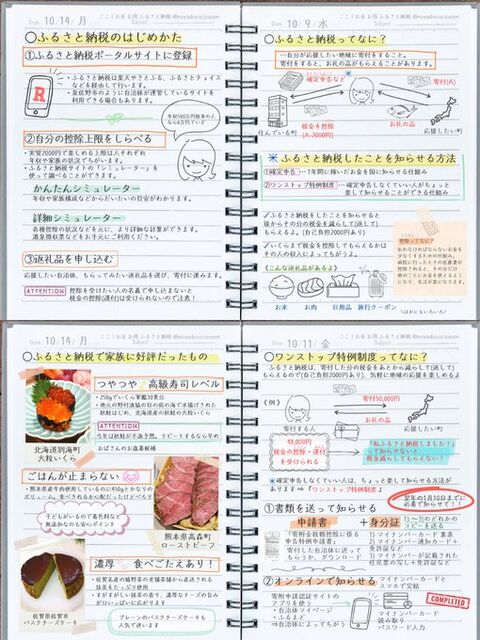 Day. 10.14 / 月
ここ｜お金 お得 ふるさと納税
〇ふるさと納税のはじめかた
①ふるさと納税ポータルサイトに登録
・ふるさと納税は楽天やさとふる、ふるさとチョイス
などを経由して行います。
・泉佐野市のように自治体が運営しているサイトを
利用できる場合もあります。
R
年収500万独身の人
なら6万ていど
②自分の控除上限をしらべる
・実質2000円で楽しめる上限は人それぞれ
年収や家族の状況でちがいます。
・ふるさと納税サイトの「シミュレーター」を
使って調べることができます。
かんたんシミュレーター
年収や家族構成などからだいたいの目安がわかります。
詳細シミュレーター
各種控除の状況などを元に、より詳細な計算ができます。
源泉徴収票などをお手元にご利用ください。
③返礼品を申し込む
応援したい自治体、もらってみたい返礼品を選び、寄付に進みます。
ATTENTION
控除を受けたい人の名義で申し込まないと
税金の控除(還付)は受けられないので注意！
Day. 10 / 9 / 水
ここ｜お金 お得 ふるさと納税
〇ふるさと納税ってなに？
…自分が応援したい地域に寄付をすること。
寄付をすると、お礼の品がもらえることがあります。
確定申告など
寄付(A)
税金を控除
(A-2000円)
お礼の品
住んでいる町
応援したい町
＊ふるさと納税したことを知らせる方法
①確定申告…1年間に稼いだお金を国に知らせる仕組み
②ワンストップ特例制度…確定申告しなくていい人がちょっと
楽して知らせることができる仕組み
✓ふるさと納税をしたことを知らせると
後からその分の税金を減らして(返して)
もらえるよ。(自己負担2000円あり)
✓いくらまで税金を控除してもらえるかは
その人の収入によってちがうよ。
《こんな返礼品があるよ》
お米 お肉 日用品 旅行クーポン
控除ってなに？
Day. 10.14 / 月
ここ｜お金 お得 ふるさと納税
〇ふるさと納税で家族に好評だったもの
つやつや 高級寿司レベル
・250gでいくら軍艦30貫分
・地元の野付漁協の目の前の海で水揚げされた
秋鮭はじめ、北海道産の秋鮭の大粒いくら
ATTENTION
今年は秋鮭が不漁予想。リピートするなら早め
おばさんのお歳暮候補
北海道別海町
大粒いくら
ごはんが止まらない
子どもがいるので着色料など
無添加なのも安心ポイント
熊本県高森町
ローストビーフ
濃厚 食べごたえあり！
・佐賀名産の嬉野茶の老舗茶舗から直送される
抹茶をたっぷり使用
・すがすがしい抹茶の香り、濃厚なチーズの旨み
がひいっぱいに広がります
プレーンのバスクチーズケーキも
人気です
佐賀県佐賀市
バスクチーズケーキ
Day. 10 / 11 / 金
ここ｜お金 お得 ふるさと納税
〇ワンストップ特例制度ってなに？
ふるさと納税は、寄付した分の税金をあとから減らして(返して)
もらえるので(自己負担2000円あり)、気軽に地域の応援を楽しめるよ
《例》
寄付50,000円
お礼の品
寄付する人
応援したい町
48,000円
税金の控除・還付
を受けられる
「私ふるさと納税しました！」
って知らせないと
税金減らしてもらえない！
＊確定申告しなくていい人は、ちょっと楽して知らせる方法が
ありますよ ⇒「ワンストップ特例制度」
翌年の1月10日までに
必着で知らせて！！
①書類を送って知らせる
申請書 ＋ 身分証
1)～3)のどれかの
コピーを送る
「寄附金税額控除に係る
申告特例申請書」
寄付した自治体に送って
もらうか、ダウンロード
1)マイナンバーカード 表裏
2)マイナンバー通知カード＋
免許証など
3)マイナンバーが記載された
住民票の写し＋免許証など
②オンラインで知らせる
マイナンバーカードと
スマホで完結
寄附申請認証サイトの
アプリを使う
・自治体マイページ
・ふるまど
⇒自治体によってちがう
マイナンバーカード
読み取り
パスワード入力
COMPLETED